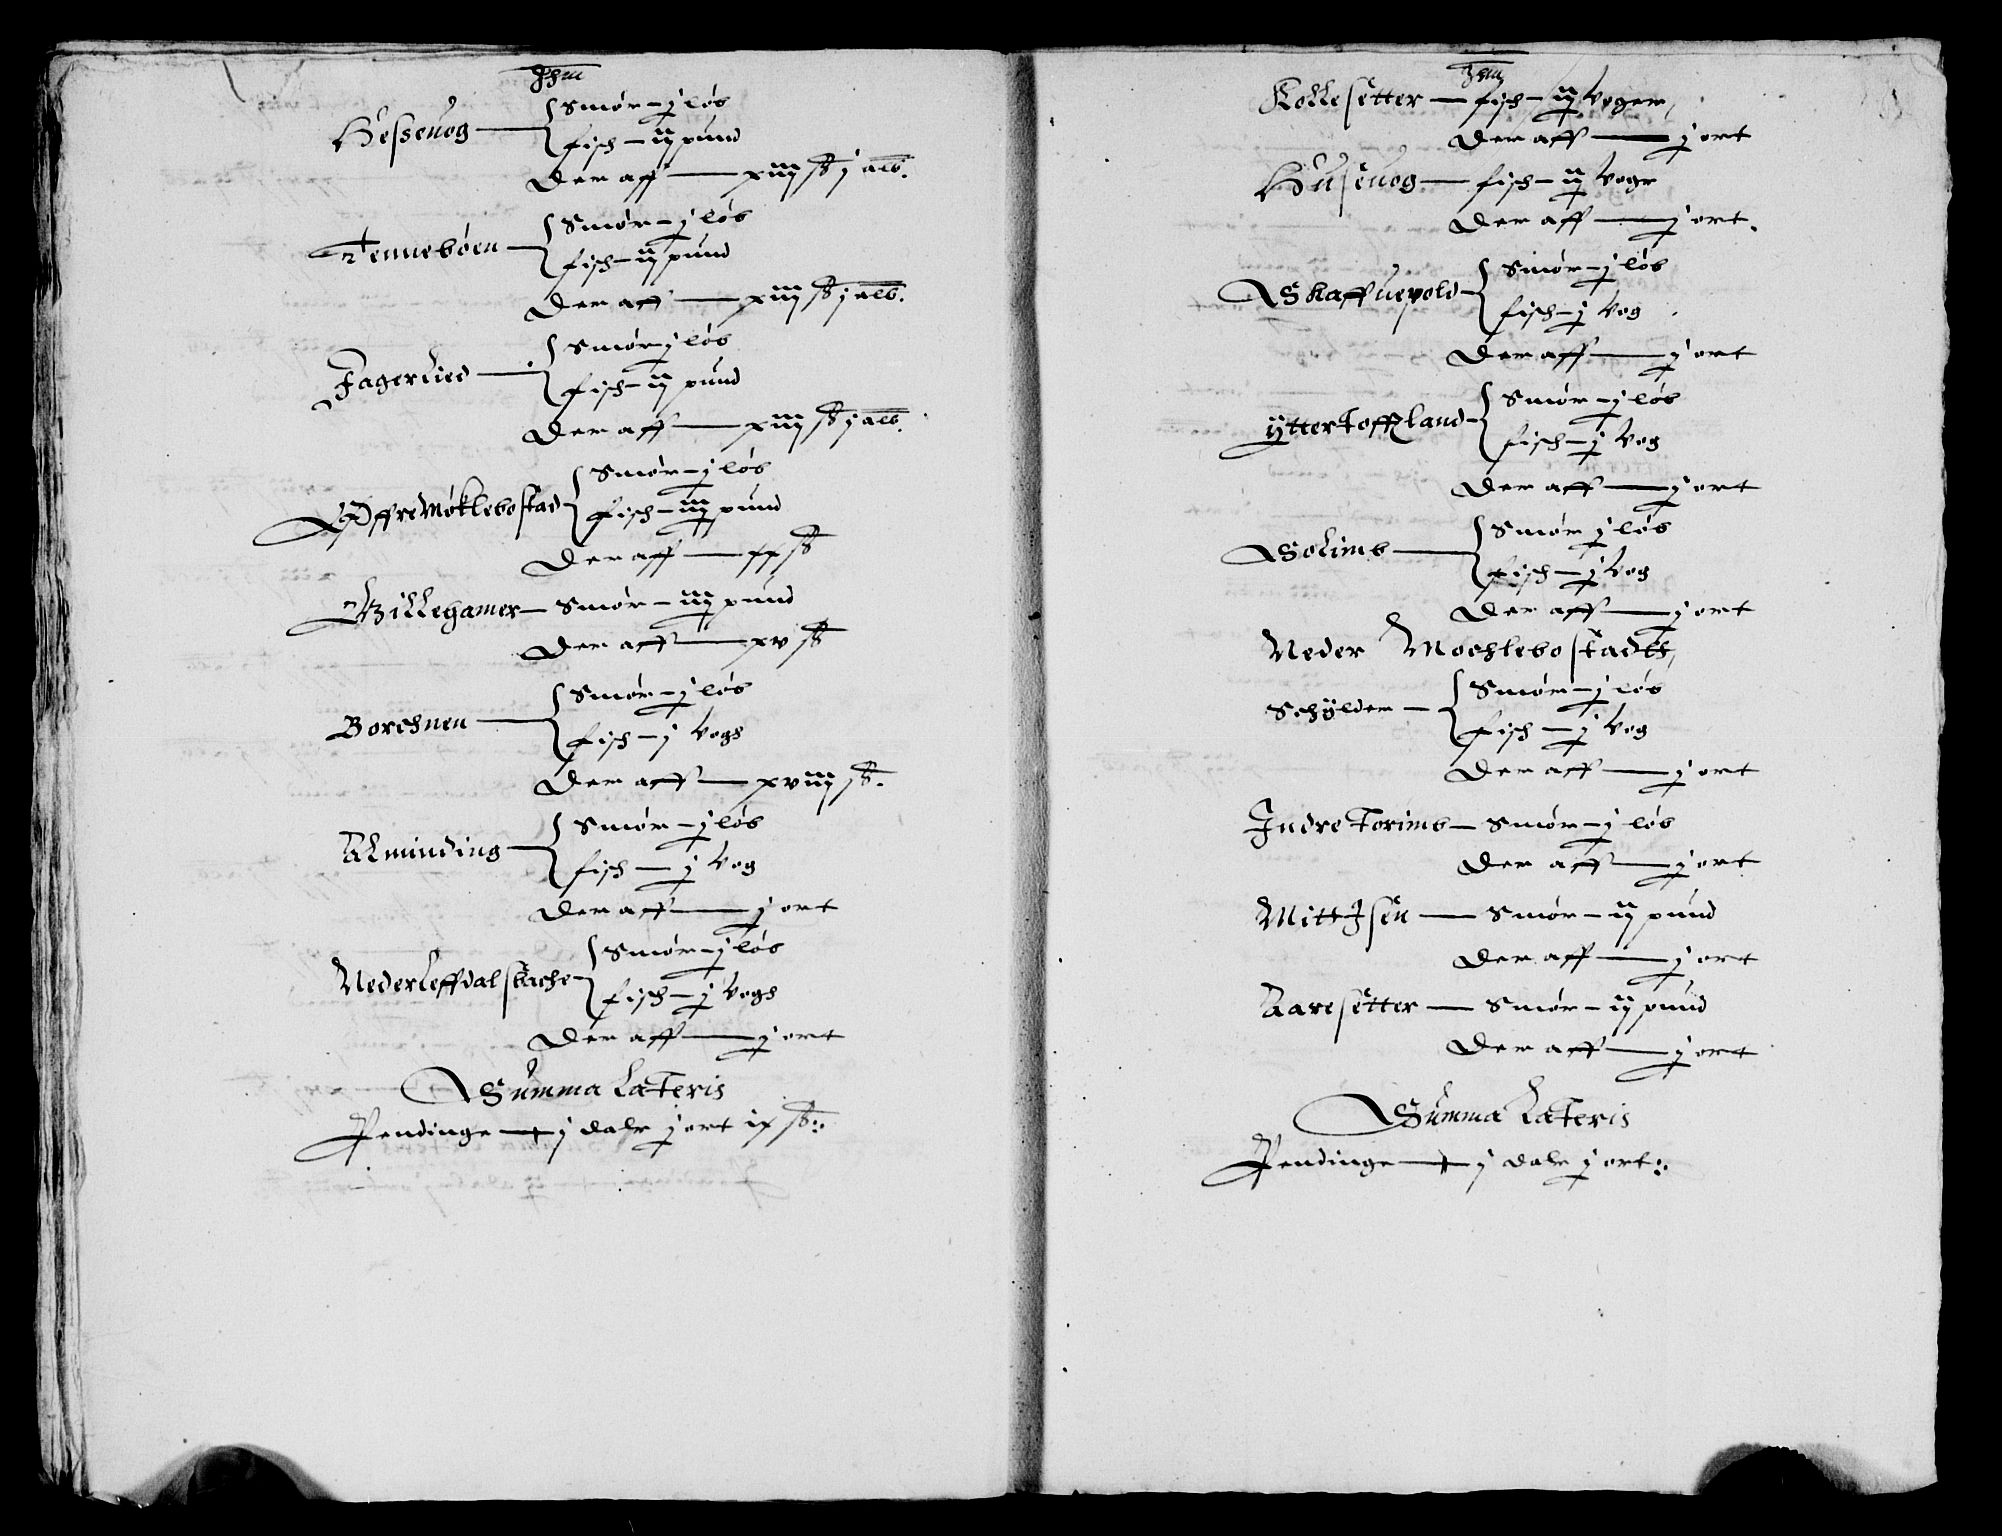 Hessevog — Smør – j løb
fisch – ij pund
Der aff — xiiij ß j alb.
Tennebøen — Smør – j løb
fisch – ij pund
Der aff — xiiij ß j alb.
Fagerlied — Smør j løb
fisch – ij pund
Der aff — xiiij ß j alb.
Øffre Møklebostad Smør – j løb
fisch – iiij pund
Der aff — xx ß
Billegamer – Smør – iiij pund
Der aff — xv ß
Borchnen — Smør – j løb
fisch – j Vogh
Der aff — xviiij ß.
Alminding — Smør – j løb
fisch — j Vog
Der aff — j ort
Neder Leffdalsbache – Smør – j løb
fisch – j Vogh
Der aff — j ort
Summa Lateris
Pendinge — j dalr j ort ix ß:
Kollesetter — fisch – ij Voger
Der aff — j ort
Husevog — fisch – ij Vogr
Der aff — j ort.
Skaffuepold – Smør – j løb
fisch – j Vog
Der aff — j ort
Ytter Toffland – Smør – j løb
fisch – j Vog
Der aff — j ort
Solimb — Smør j løb
fisch – j Vog
Der aff — j ort
Neder Mochlebostadth,
Schylder — Smør – j løb
fisch – j Vog
Der aff — j ort
Indre Torimb – Smør – j løb
Der aff — j ort
Mitt Isen — Smør – ij pund
Der aff — j ort
Aaresetter — Smør – ij pund
Der aff — j ort
Summa Lateris
Pendinge — j dalr j ort: